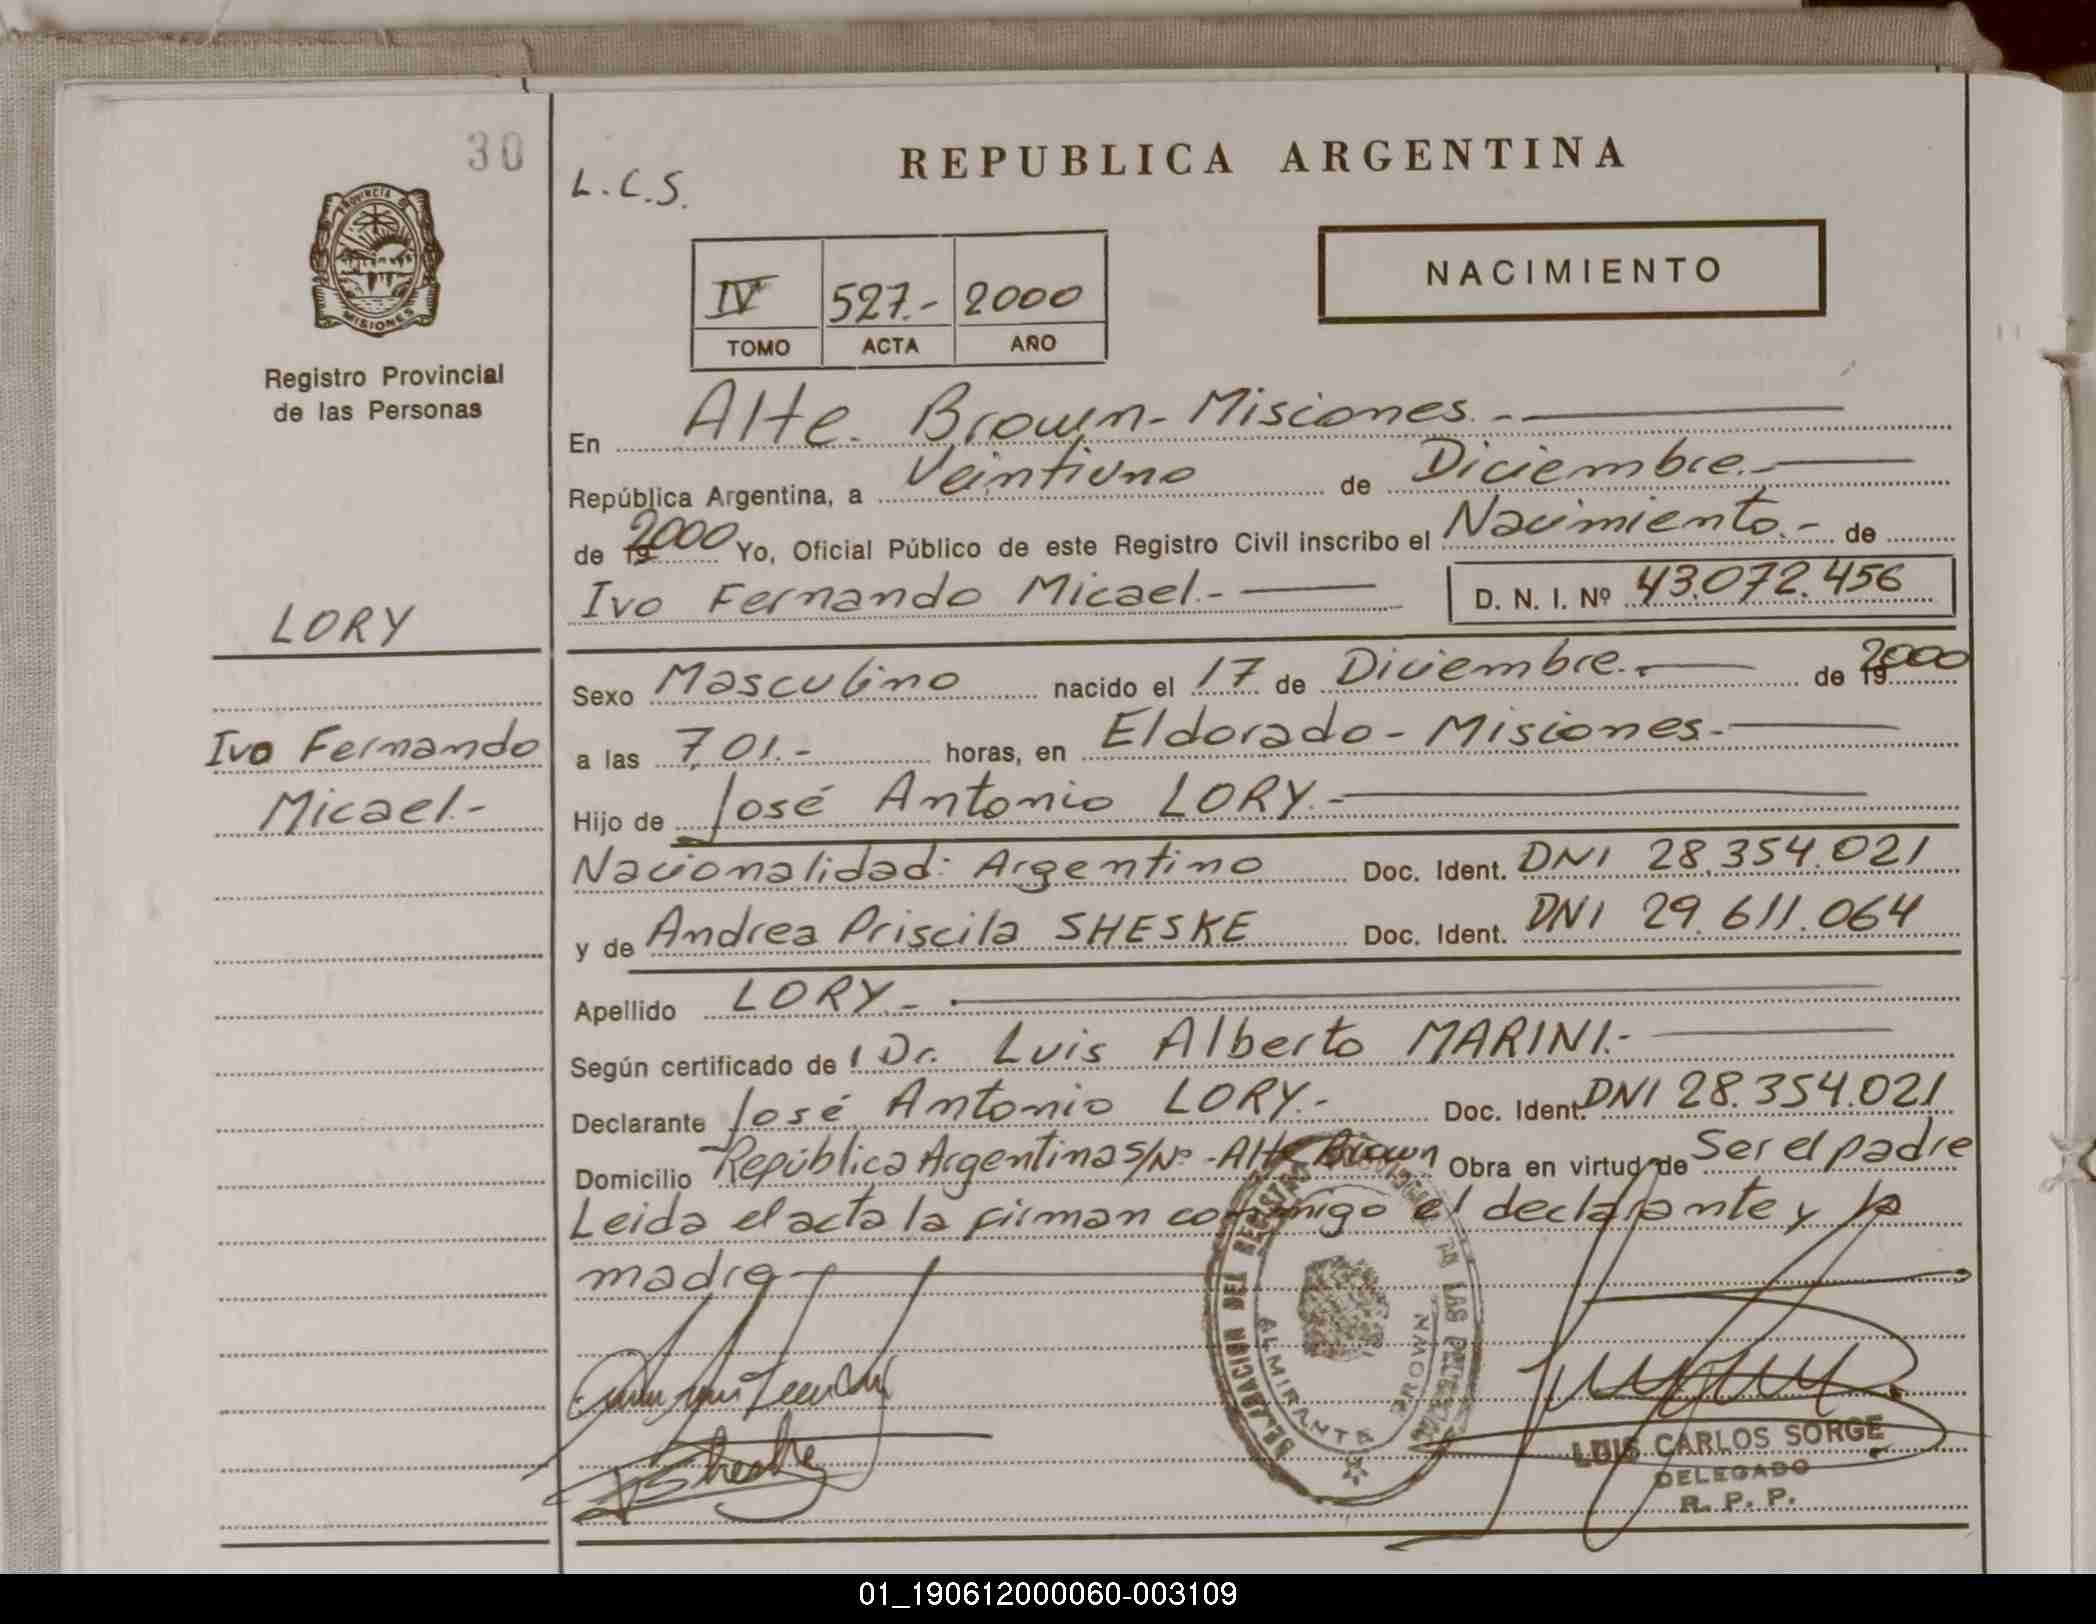 30
PROVINCIA DE
MISIONES
Registro Provincial
de las Personas
LORY
Ivo Fernando
Micael.-
L.C.S.
REPUBLICA ARGENTINA
IV 527.- 2000
TOMO ACTA AÑO
NACIMIENTO
En Alte. Brown - Misiones.-
República Argentina, a Veintiuno de Diciembre.-
de 19 2000 Yo, Oficial Público de este Registro Civil inscribo el Nacimiento.- de
Ivo Fernando Micael.- D. N. I. Nº 43.072.456
Sexo Masculino nacido el 17 de Diciembre.- de 19 2000
a las 7,01.- horas, en Eldorado - Misiones.-
Hijo de José Antonio LORY.-
Nacionalidad: Argentino Doc. Ident. DNI 28.354.021
y de Andrea Priscila SHESKE Doc. Ident. DNI 29.611.064
Apellido LORY.-
Según certificado de l Dr. Luis Alberto MARINI.-
Declarante José Antonio LORY.- Doc. Ident. DNI 28.354.021
Domicilio República Argentina S/Nº - Alte Brown Obra en virtud de Ser el padre
Leida el acta la firman conmigo el declarante y la
madre
DELEGACION DEL REGISTRO DE LAS PERSONAS
ALMIRANTE BROWN
Sheske
LUIS CARLOS SORGE
DELEGADO
R. P. P.
01_190612000060-003109